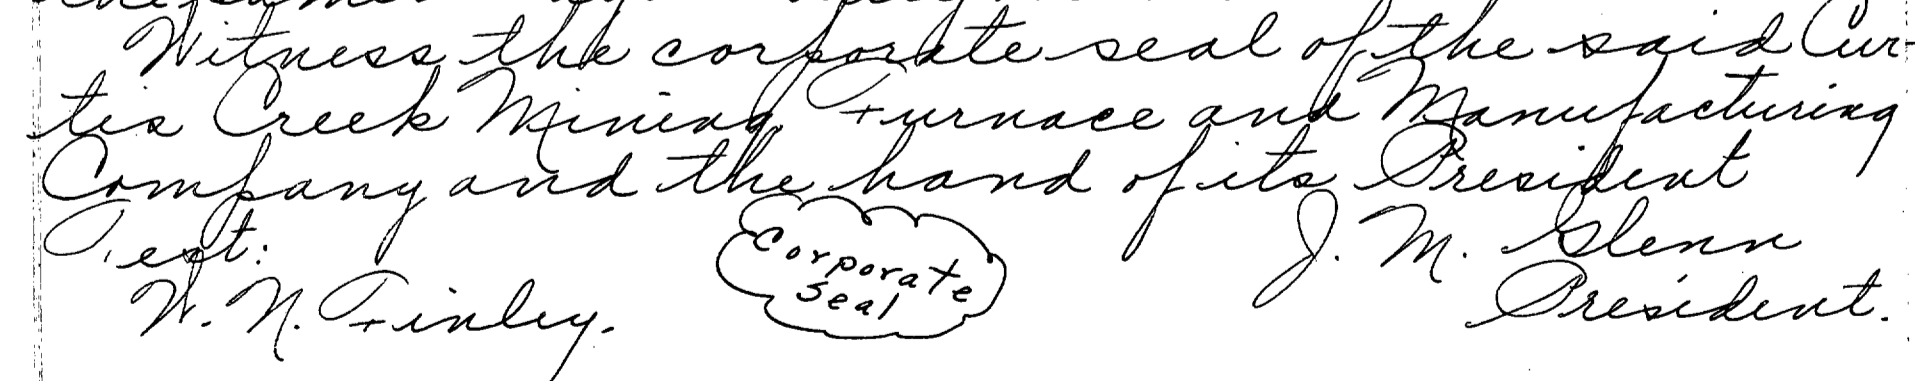 Witness the corporate seal of the said Cur-
tis Creek Mining Furnace and Manufacturing
Company and the hand of its President
Test:
Corporate
Seal
J. M. Glenn
W. N. Finley.
President.